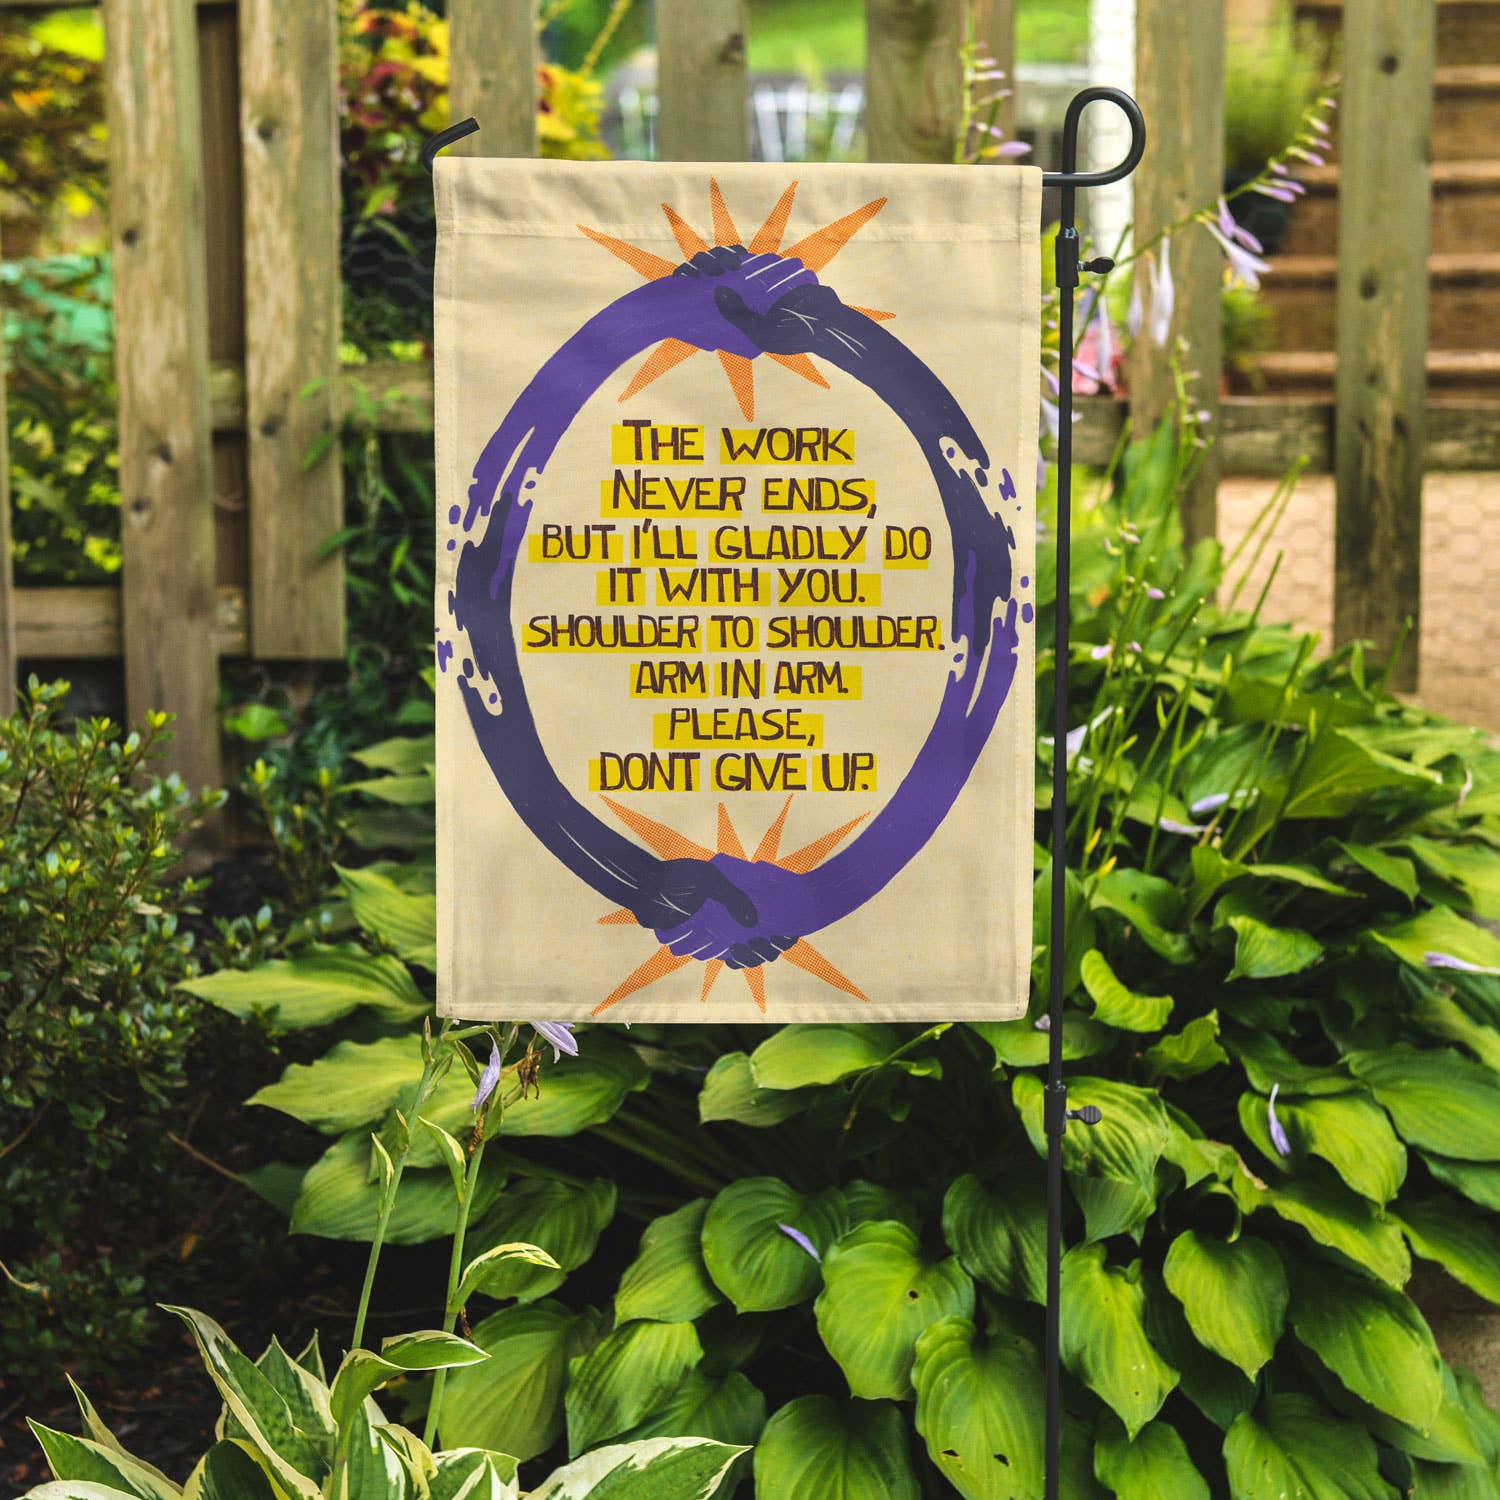 THE WORK
NEVER ENDS,
BUT I'LL GLADLY DO
IT WITH YOU.
SHOULDER TO SHOULDER.
ARM IN ARM.
PLEASE,
DONT GIVE UP.